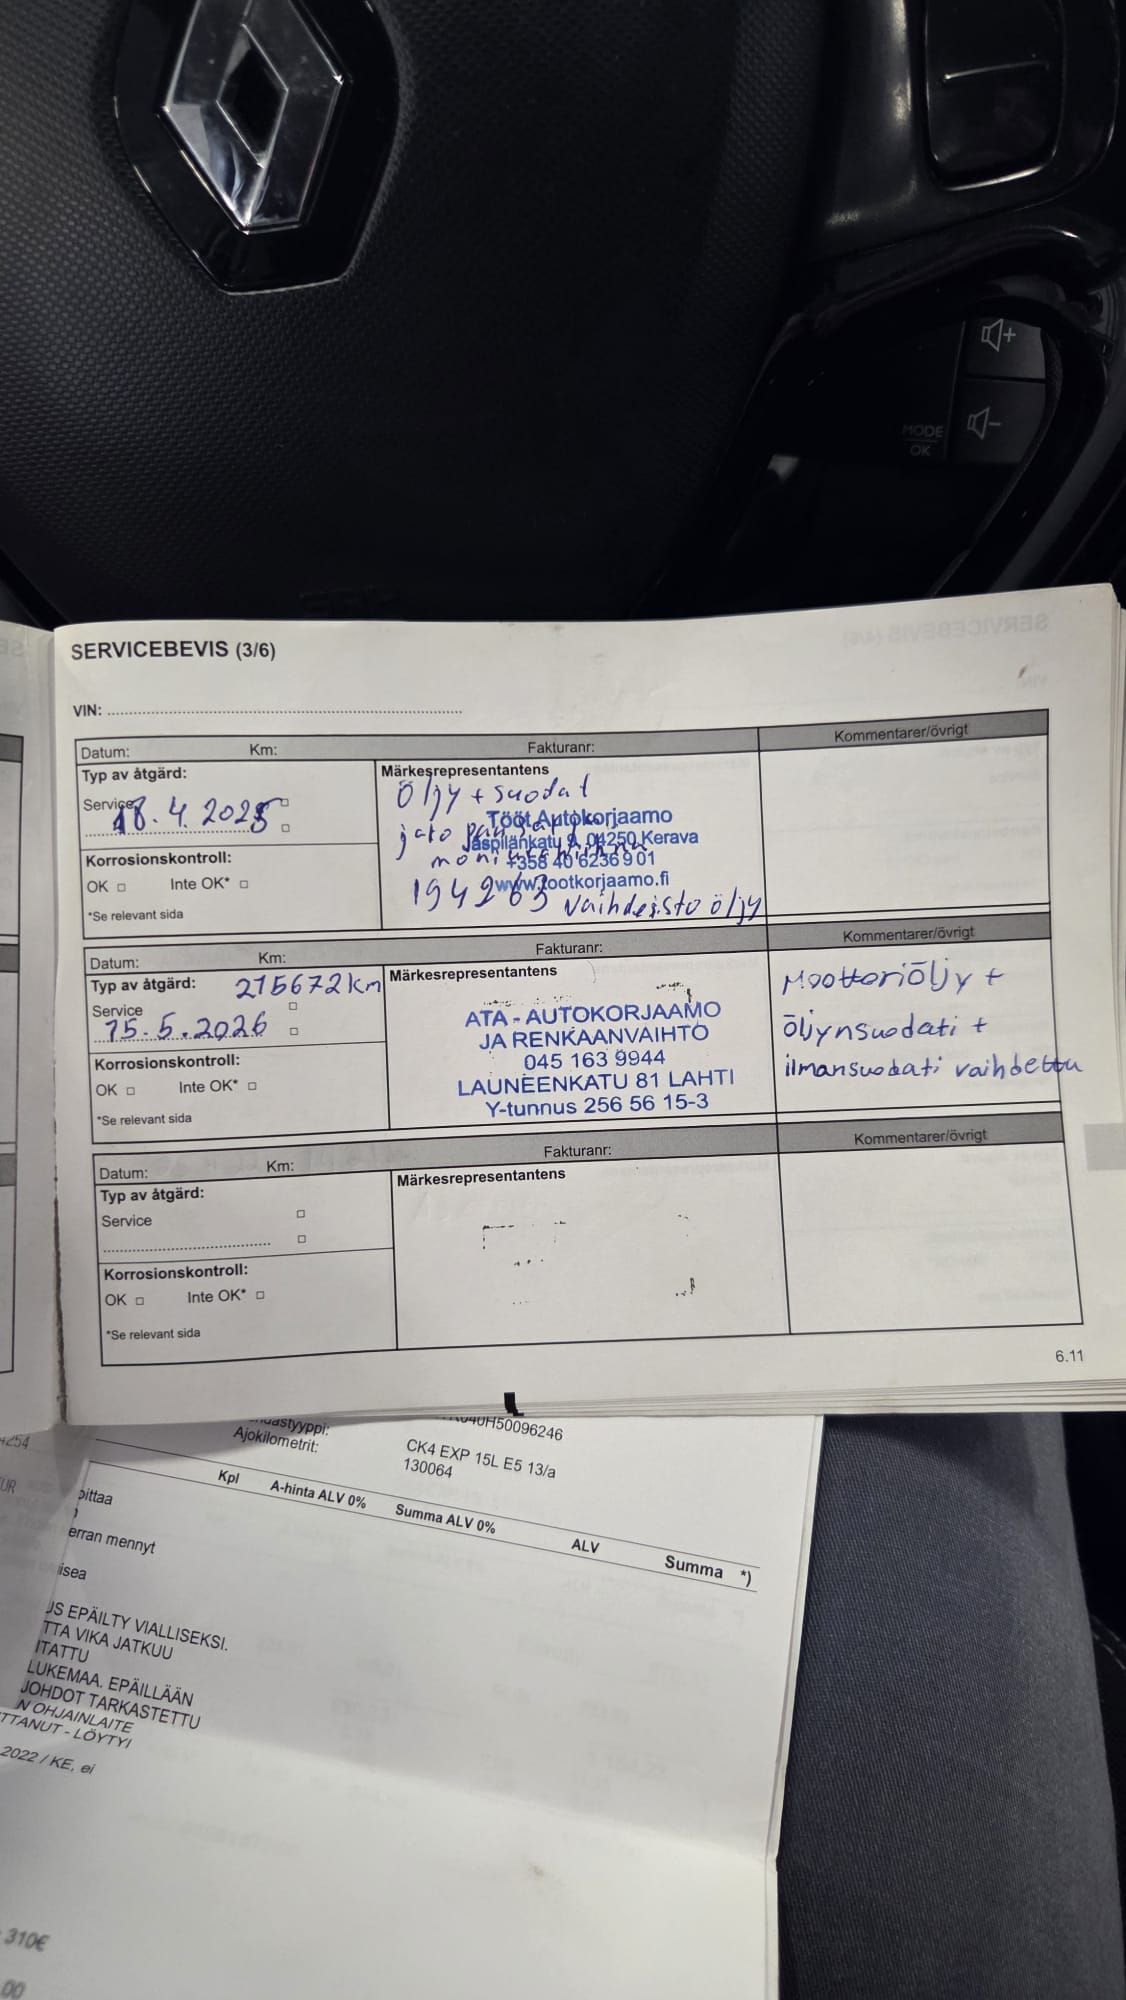 MODE
OK
SERVICEBEVIS (3/6)
VIN:
Datum: Km: Fakturanr: Kommentarer/övrigt
Typ av åtgärd: Märkesrepresentantens
Öljy + suodat
Service
18.4.2025
Töөt Autokorjaamo
jako
Jaspilankatu 9, 04250 Kerava
+358 40 6236901
www.tootkorjaamo.fi
194263 vaihdeisto öljy
Korrosionskontroll:
OK Inte OK*
*Se relevant sida
Datum: Km: Fakturanr: Kommentarer/övrigt
Typ av åtgärd: 215672 km Märkesrepresentantens
Service
15.5.2026
ATA - AUTOKORJAAMO
JA RENKAANVAIHTO
045 163 9944
LAUNEENKATU 81 LAHTI
Y-tunnus 256 56 15-3
Moottoriöljy +
öljynsuodati +
ilmansuodati vaihdettu
Korrosionskontroll:
OK Inte OK*
*Se relevant sida
Datum: Km: Fakturanr: Kommentarer/övrigt
Typ av åtgärd: Märkesrepresentantens
Service
Korrosionskontroll:
OK Inte OK*
*Se relevant sida
6.11
4254
Ajokilometrit:
040H50096246
CK4 EXP 15L E5 13/a
130064
Kpl A-hinta ALV 0% Summa ALV 0% ALV Summa *)
oittaa
erran mennyt
isea
US EPÄILTY VIALLISEKSI.
TTA VIKA JATKUU
ITATTU
LUKEMAA. EPÄILLÄÄN
JOHDOT TARKASTETTU
N OHJAINLAITE
TTANUT - LÖYTYI
2022 / KE, ei
310€
00